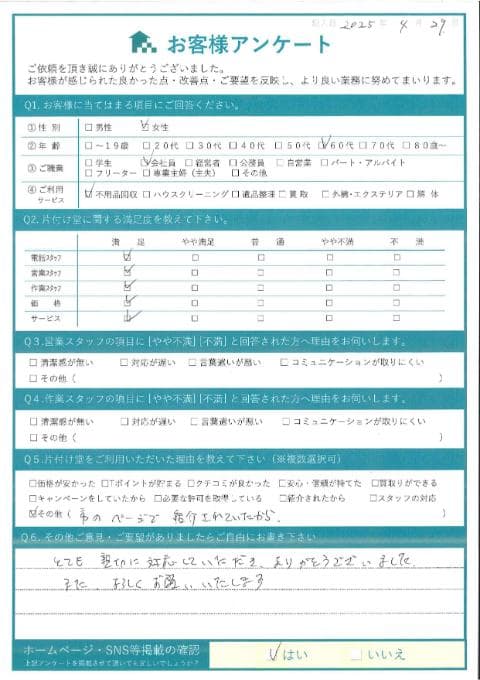 記入日 2025年 4月 29日
お客様アンケート
ご依頼を頂き誠にありがとうございました。
お客様が感じられた良かった点・改善点・ご要望を反映し、より良い業務に努めてまいります。
Q1. お客様に当てはまる項目にご回答ください。
①性 別 □男性 ☑女性
②年 齢 □～19歳 □20代 □30代 □40代 □50代 ☑60代 □70代 □80歳～
③ご職業 □学生 ☑会社員 □経営者 □公務員 □自営業 □パート・アルバイト
□フリーター □専業主婦（主夫） □その他
④ご利用サービス ☑不用品回収 □ハウスクリーニング □遺品整理 □買取 □外構・エクステリア □解体
Q2. 片付け堂に関する満足度を教えて下さい。
満 足 やや満足 普 通 やや不満 不 満
電話スタッフ ☑ □ □ □ □
営業スタッフ ☑ □ □ □ □
作業スタッフ ☑ □ □ □ □
価 格 ☑ □ □ □ □
サービス ☑ □ □ □ □
Q3. 営業スタッフの項目に[やや不満][不満]と回答された方へ理由をお伺いします。
□清潔感が無い □対応が遅い □言葉遣いが悪い □コミュニケーションが取りにくい
□その他（ ）
Q4. 作業スタッフの項目に[やや不満][不満]と回答された方へ理由をお伺いします。
□清潔感が無い □対応が遅い □言葉遣いが悪い □コミュニケーションが取りにくい
□その他（ ）
Q5. 片付け堂をご利用いただいた理由を教えて下さい（※複数選択可）
□価格が安かった □Tポイントが貯まる □クチコミが良かった □安心・信頼が持てた □買取りができる
□キャンペーンをしていたから □必要な許可を取得している □紹介されたから □スタッフの対応
☑その他（ 市のページで紹介されていたから。 ）
Q6. その他ご意見・ご要望がありましたらご自由にお書き下さい
とても 親切に対応していただき、ありがとうございました。
また、よろしくお願いいたします
ホームページ・SNS等掲載の確認 ☑はい □いいえ
上記アンケートを掲載させて頂いても宜しいでしょうか？